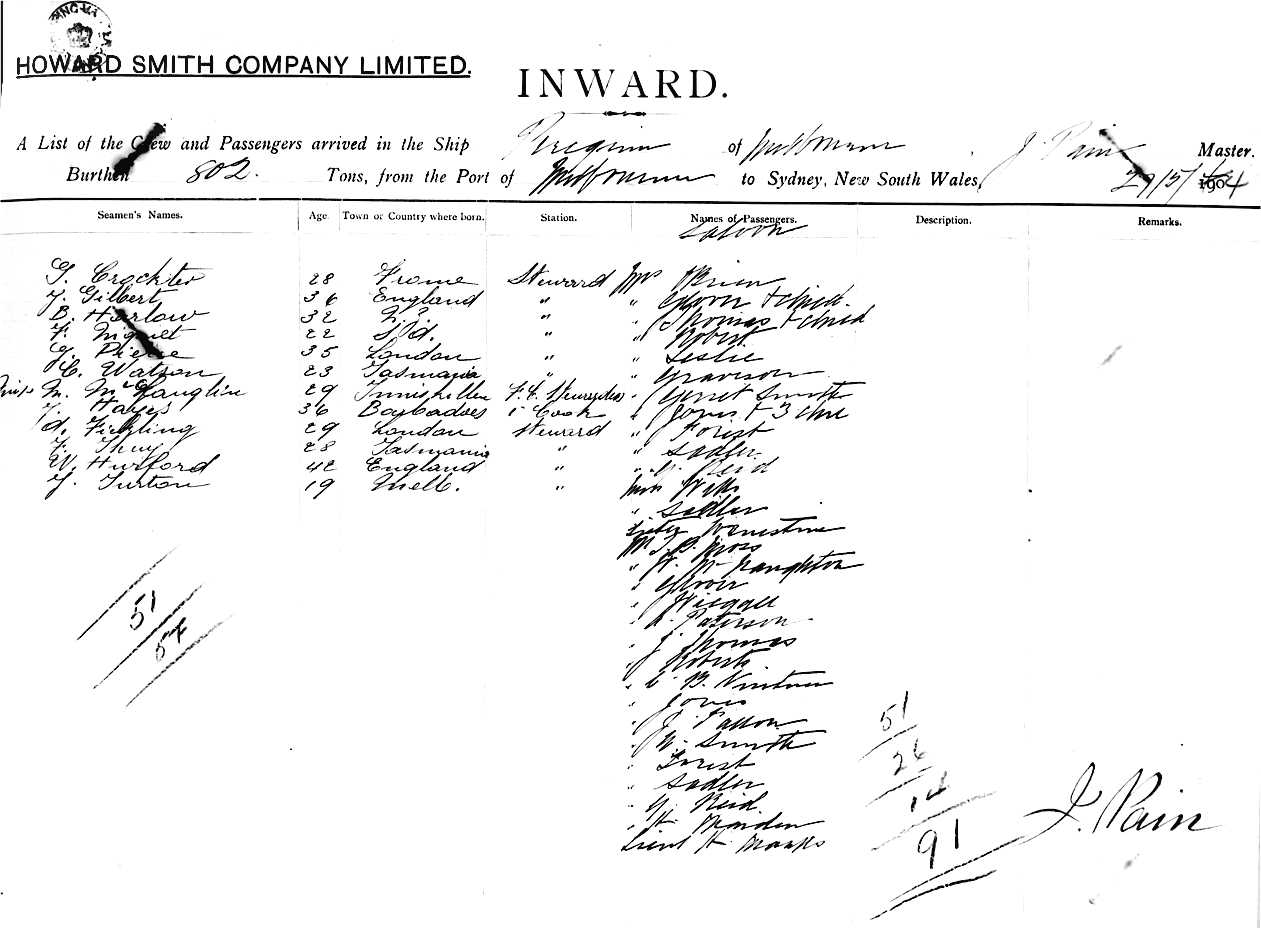 HOWARD SMITH COMPANY LIMITED.
INWARD.
A List of the Crew and Passengers arrived in the Ship Peregrine of Melbourne J. Pain Master.
Burthen 802. Tons, from the Port of Melbourne to Sydney, New South Wales, 29/5/1904
Seamen's Names. Age. Town or Country where born. Station. Names of Passengers. Description. Remarks.
Saloon
G. Crockter 28 Frome Steward Mrs O'Brien
J. Gilbert 36 England " " Glover & child.
B. Harlow 32 N.Z. " " Thomas & child
F. 22 S/d. " " Robert
G. Pierce 35 London " " Leslie
C. Watson 23 Tasmania " "
Miss M. McLaughlin 29 Inniskillen F.C. Stewardess " Smith
T. Hayes 36 Barbadoes " Cook " Jones & 3 chd
A. Fickling 29 London Steward " Forist
F. 28 Tasmania " " Sadler.
W. Hurford 42 England " " Reid
J. Turton 19 Melb. " Miss Wills
" Sadler
Mr J. B. Moss
" W. McNaughton
" Glover
" Wiegall
" A. Paterson
" J. Thomas
" Roberts
" C. B.
" Jones
" J.
" W. Smith
" Forist
" Sadler
" G. Reid
" H. Marden
Lieut H. Marks
51
57
51
26
14
91
J. Pain